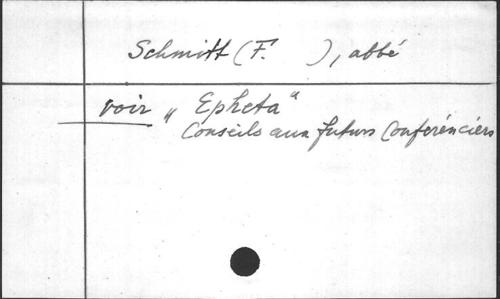 Schmitt (F. ), abbé
voir „ Epheta "
Conseils aux futurs Conférenciers